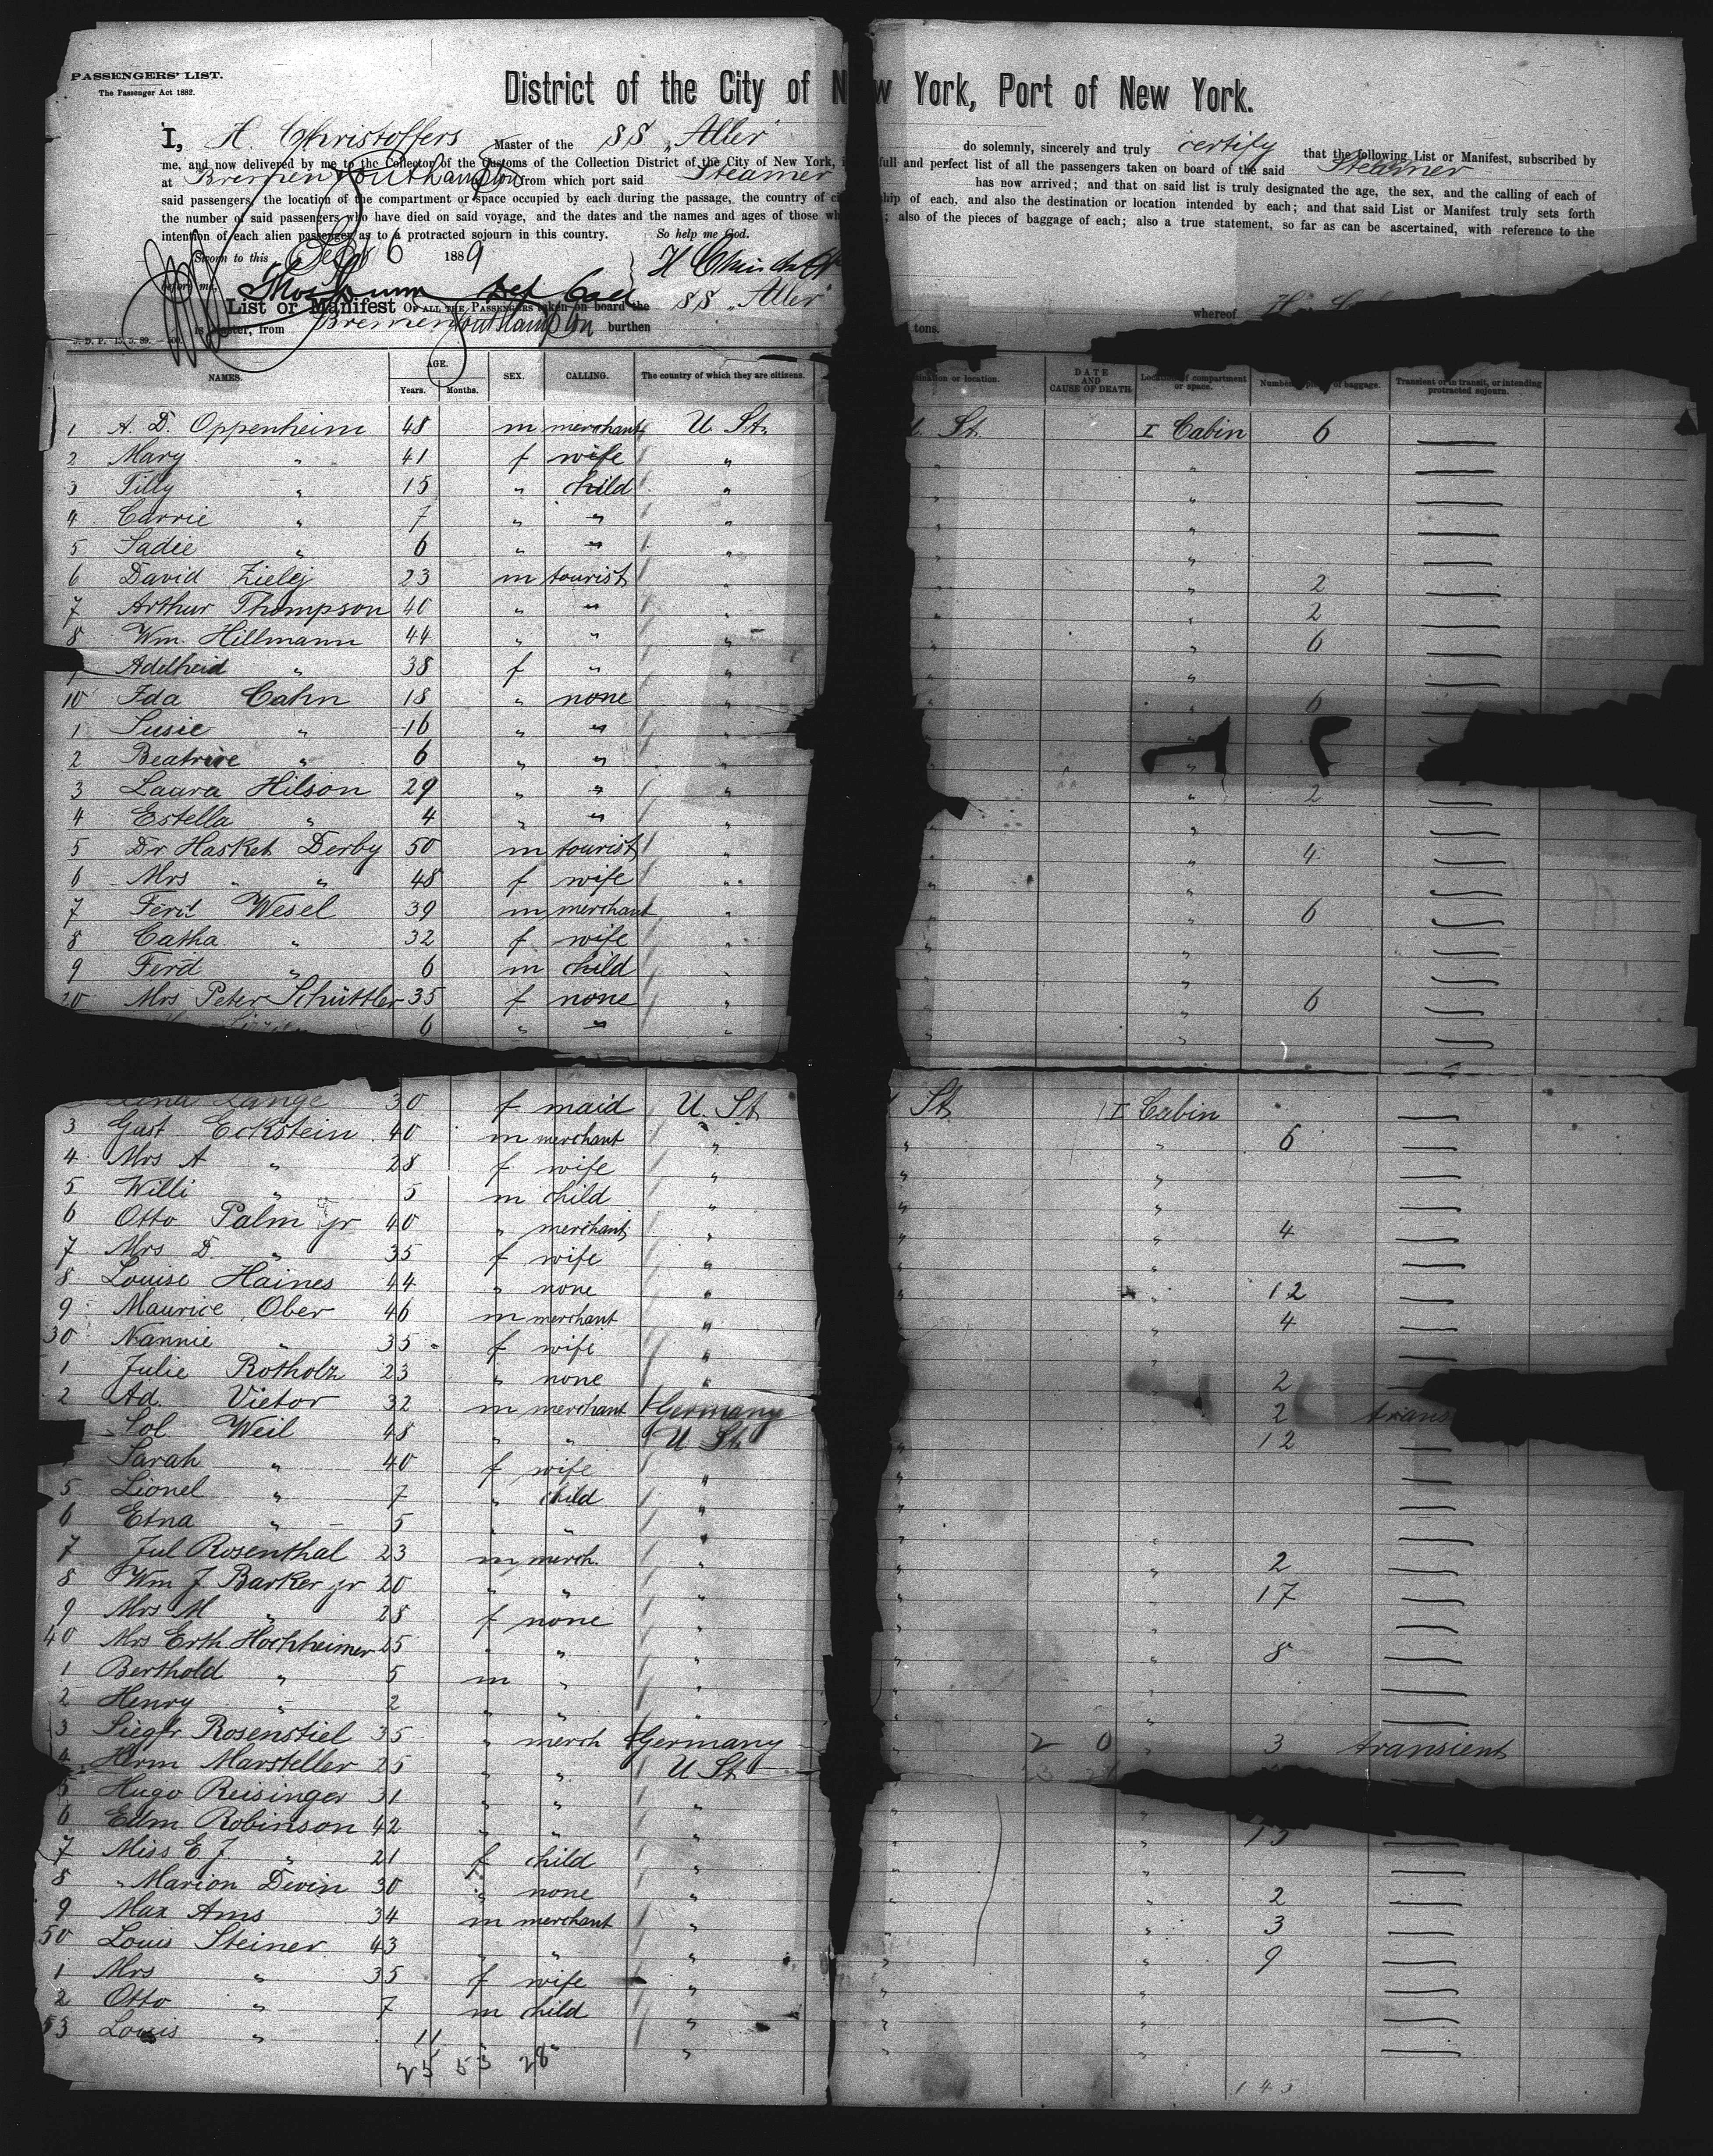 PASSENGERS' LIST.
The Passenger Act 1882.
District of the City of New York, Port of New York.
I, H. Christoffers Master of the SS „Aller" do solemnly, sincerely and truly certify that the following List or Manifest, subscribed by
me, and now delivered by me to the Collector of the Customs of the Collection District of the City of New York, full and perfect list of all the passengers taken on board of the said Steamer
at Bremen Southampton from which port said Steamer has now arrived; and that on said list is truly designated the age, the sex, and the calling of each of
said passengers, the location of the compartment or space occupied by each during the passage, the country of ship of each, and also the destination or location intended by each; and that said List or Manifest truly sets forth
the number of said passengers who have died on said voyage, and the dates and the names and ages of those ; also of the pieces of baggage of each; also a true statement, so far as can be ascertained, with reference to the
intention of each alien passenger as to a protracted sojourn in this country. So help me God.
Sworn to this 6 1889
before me,
List or Manifest OF ALL THE PASSENGERS taken on board the SS „Aller" whereof
is Master, from Bremen Southampton burthen tons.
NAMES. AGE. Years. Months. SEX. CALLING. The country of which they are citizens. or location. DATE AND CAUSE OF DEATH. Location of compartment or space. of baggage. Transient or in transit, or intending protracted sojourn.
1 A. D. Oppenheim 48 m merchant U. St. St. I Cabin 6 —
2 Mary „ 41 f wife „ „ „ —
3 Tilly „ 15 „ child „ „ „ —
4 Carrie „ 7 „ „ „ „ „ —
5 Sadie „ 6 „ „ „ „ „ —
6 David 23 m tourist „ „ „ 2 —
7 Arthur Thompson 40 „ „ „ „ „ 2 —
8 Wm. Hillmann 44 „ „ „ „ „ 6 —
Adelheid „ 38 f „ „ „ „ —
10 Ida Cahn 18 „ none „ „ „ 6 —
1 Susie „ 16 „ „ „ „
2 Beatrice „ 6 „ „ „ „ „
3 Laura Hilson 29 „ „ „ „ „ 2 —
4 Estella „ 4 „ „ „ „ „ —
5 Dr Hasket Derby 50 m tourist „ „ „ 4 —
6 Mrs „ „ 48 f wife „ „ „ —
7 Ferd Wesel 39 m merchant „ „ „ 6 —
8 Catha „ 32 f wife „ „ „ —
9 Ferd „ 6 m child „ „ „ —
20 Mrs Peter Schüttler 35 f none „ „ „ 6 —
6 „ „ „ „ „ —
Lange 30 f maid U. St. St. I Cabin —
3 Gust Eckstein 40 m merchant „ „ „ 6 —
4 Mrs A „ 28 f wife „ „ „ —
5 Willi „ 5 m child „ „ „ —
6 Otto Palm jr 40 „ merchant „ „ „ 4 —
7 Mrs D. „ 35 f wife „ „ „ —
8 Louise Haines 44 „ none „ „ „ 12 —
9 Maurice Ober 46 m merchant „ „ „ 4 —
30 Nannie „ 35 f wife „ „ „ —
1 Julie Rotholz 23 „ none „ 2 —
2 Ad. Vietor 32 m merchant Germany 2
Sol. Weil 48 „ „ U. St. „ 12 —
Sarah „ 40 f wife „ „ —
5 Lionel „ 7 „ child „ „ —
6 Etna „ 5 „ „ „ „ —
7 Jul Rosenthal 23 m merch. „ „ „ 2 —
8 Wm J Barker jr 20 „ „ „ „ „ 17 —
9 Mrs M „ 28 f none „ „ „ —
40 Mrs Erth. Hochheimer 25 „ „ „ „ „ 8 —
1 Berthold „ 5 m „ „ „ „ —
2 Henry „ 2 „ „ „ „ „ —
3 Siegfr. Rosenstiel 35 „ merch Germany „ 2 0 „ 3 transient
4 Herm Marsteller 25 „ „ U. St.
5 Hugo Reisinger 31 „ „ „ „
6 Edm Robinson 42 „ „ „ „ „ —
7 Miss E. J. „ 21 f child „ „ „ —
8 „ Marion Devin 30 „ none „ „ „ 2 —
9 Max Ams 34 m merchant „ „ „ 3 —
50 Louis Steiner 43 „ „ „ „ „ 9 —
1 Mrs „ 35 f wife „ „ „ —
2 Otto „ 7 m child „ „ „ —
53 Louis „ 11 „ „ „ „ „ —
25 53 28
145